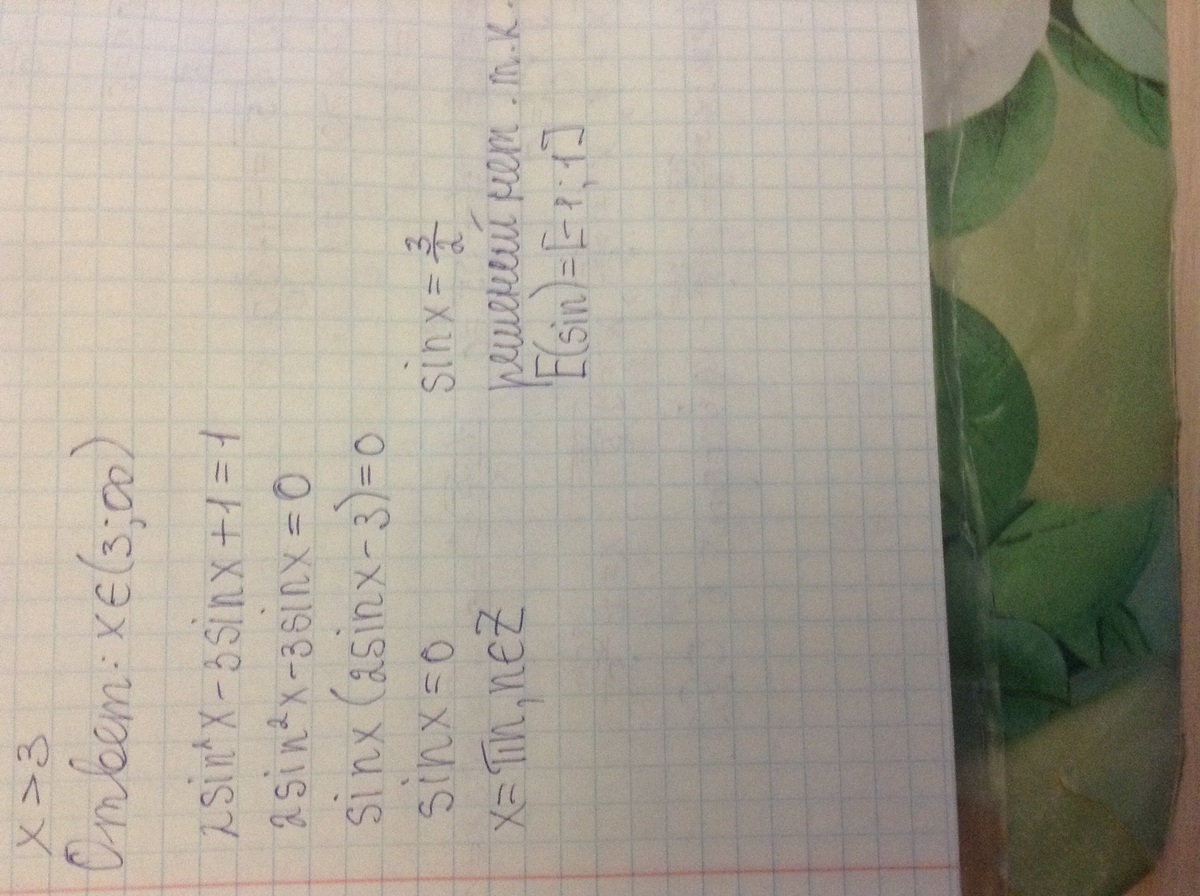 x > 3
Ответ: x ∈ (3; ∞)
2 sin²x - 3 sin x + 1 = 1
2 sin²x - 3 sin x = 0
sin x (2 sin x - 3) = 0
sin x = 0 sin x = 3/2
x = πn, n ∈ Z решений нет. т.к.
E(sin) = [-1; 1]